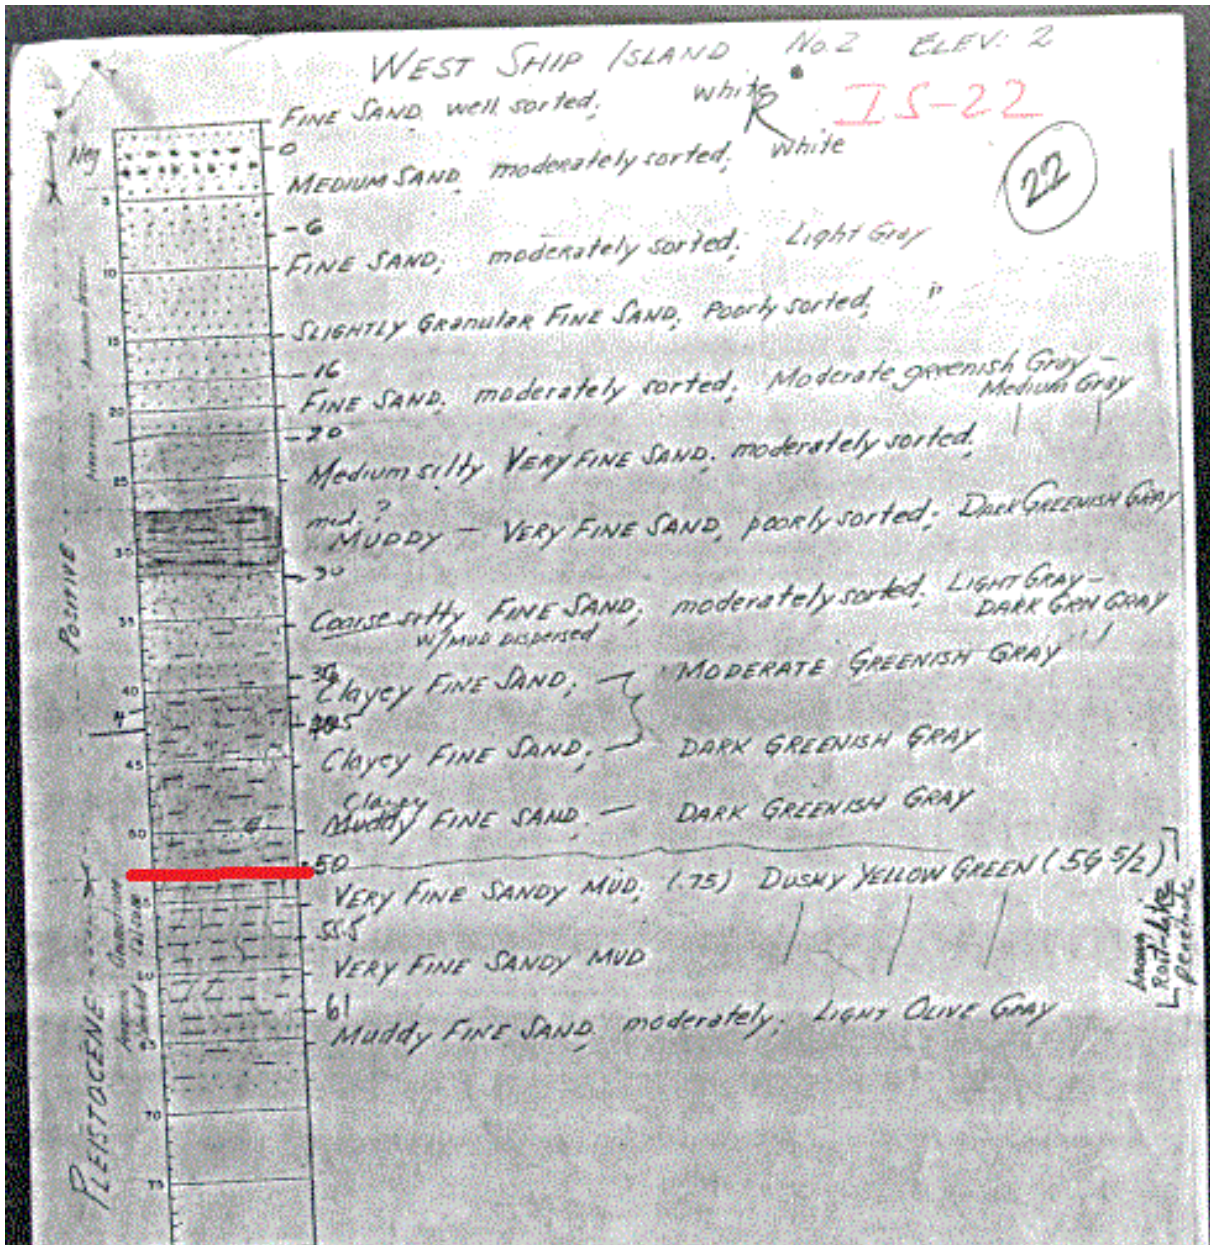 WEST SHIP ISLAND No. 2 ELEV: 2
IS-22
22
FINE SAND, well sorted; white
Neg
0
MEDIUM SAND, moderately sorted; white
5
-6
FINE SAND, moderately sorted; Light Gray
10
SLIGHTLY Granular FINE SAND, Poorly sorted, "
15
-16
FINE SAND, moderately sorted; Moderate greenish Gray -
Medium Gray
20
-20
Medium silty VERY FINE SAND; moderately sorted,
25
med. ?
MUDDY - VERY FINE SAND, poorly sorted; DARK GREENISH GRAY
30
-30
POSITIVE
Coarse silty FINE SAND; moderately sorted; LIGHT GRAY -
DARK GRN GRAY
w/MUD DISPERSED
35
Clayey FINE SAND; - MODERATE GREENISH GRAY
40
Clayey FINE SAND; DARK GREENISH GRAY
45
Clayey
Muddy FINE SAND. - DARK GREENISH GRAY
50
-50
VERY FINE SANDY MUD, (.75) DUSKY YELLOW GREEN (5G 5/2)
55.5
VERY FINE SANDY MUD
Root-like
61
Muddy FINE SAND, moderately; LIGHT OLIVE GRAY
PLEISTOCENE
70
75